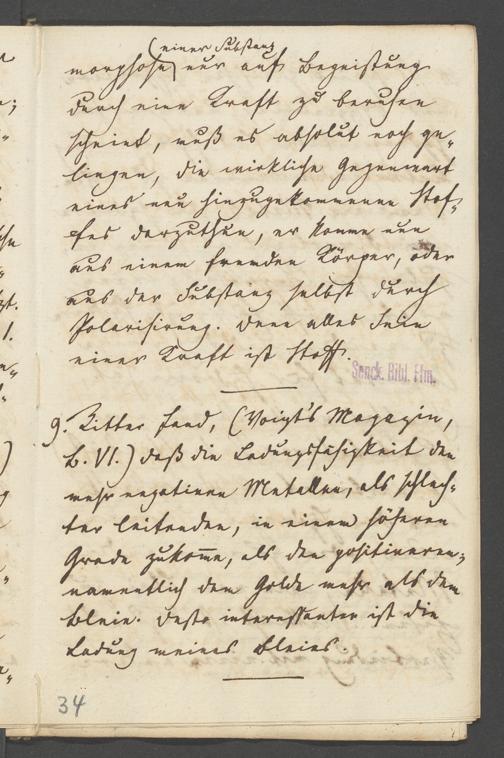 (einer Substanz
morphose) nur auf Begeistung
durch eine Kraft zu beruhen
scheint, muß es absolut noch ge-
lingen, die wirkliche Gegenwart
eines neu hinzugekommenen Stof-
fes darzuthun, er komme nun
aus einem fremden Körper, oder
aus der Substanz selbst durch
Polarisirung. Denn alles Sein
einer Kraft ist Stoff.
Senck. Bibl. Ffm.
9. Ritter fand, (Voigt's Magazin,
B. VI.) daß die Ladungsfähigkeit den
mehr negativen Metallen, als schlech-
ter leitenden, in einem höheren
Grade zukom̅e, als den positiveren;
namentlich dem Golde mehr als dem
Bleie. Desto interessanter ist die
Ladung meines Bleies.
34